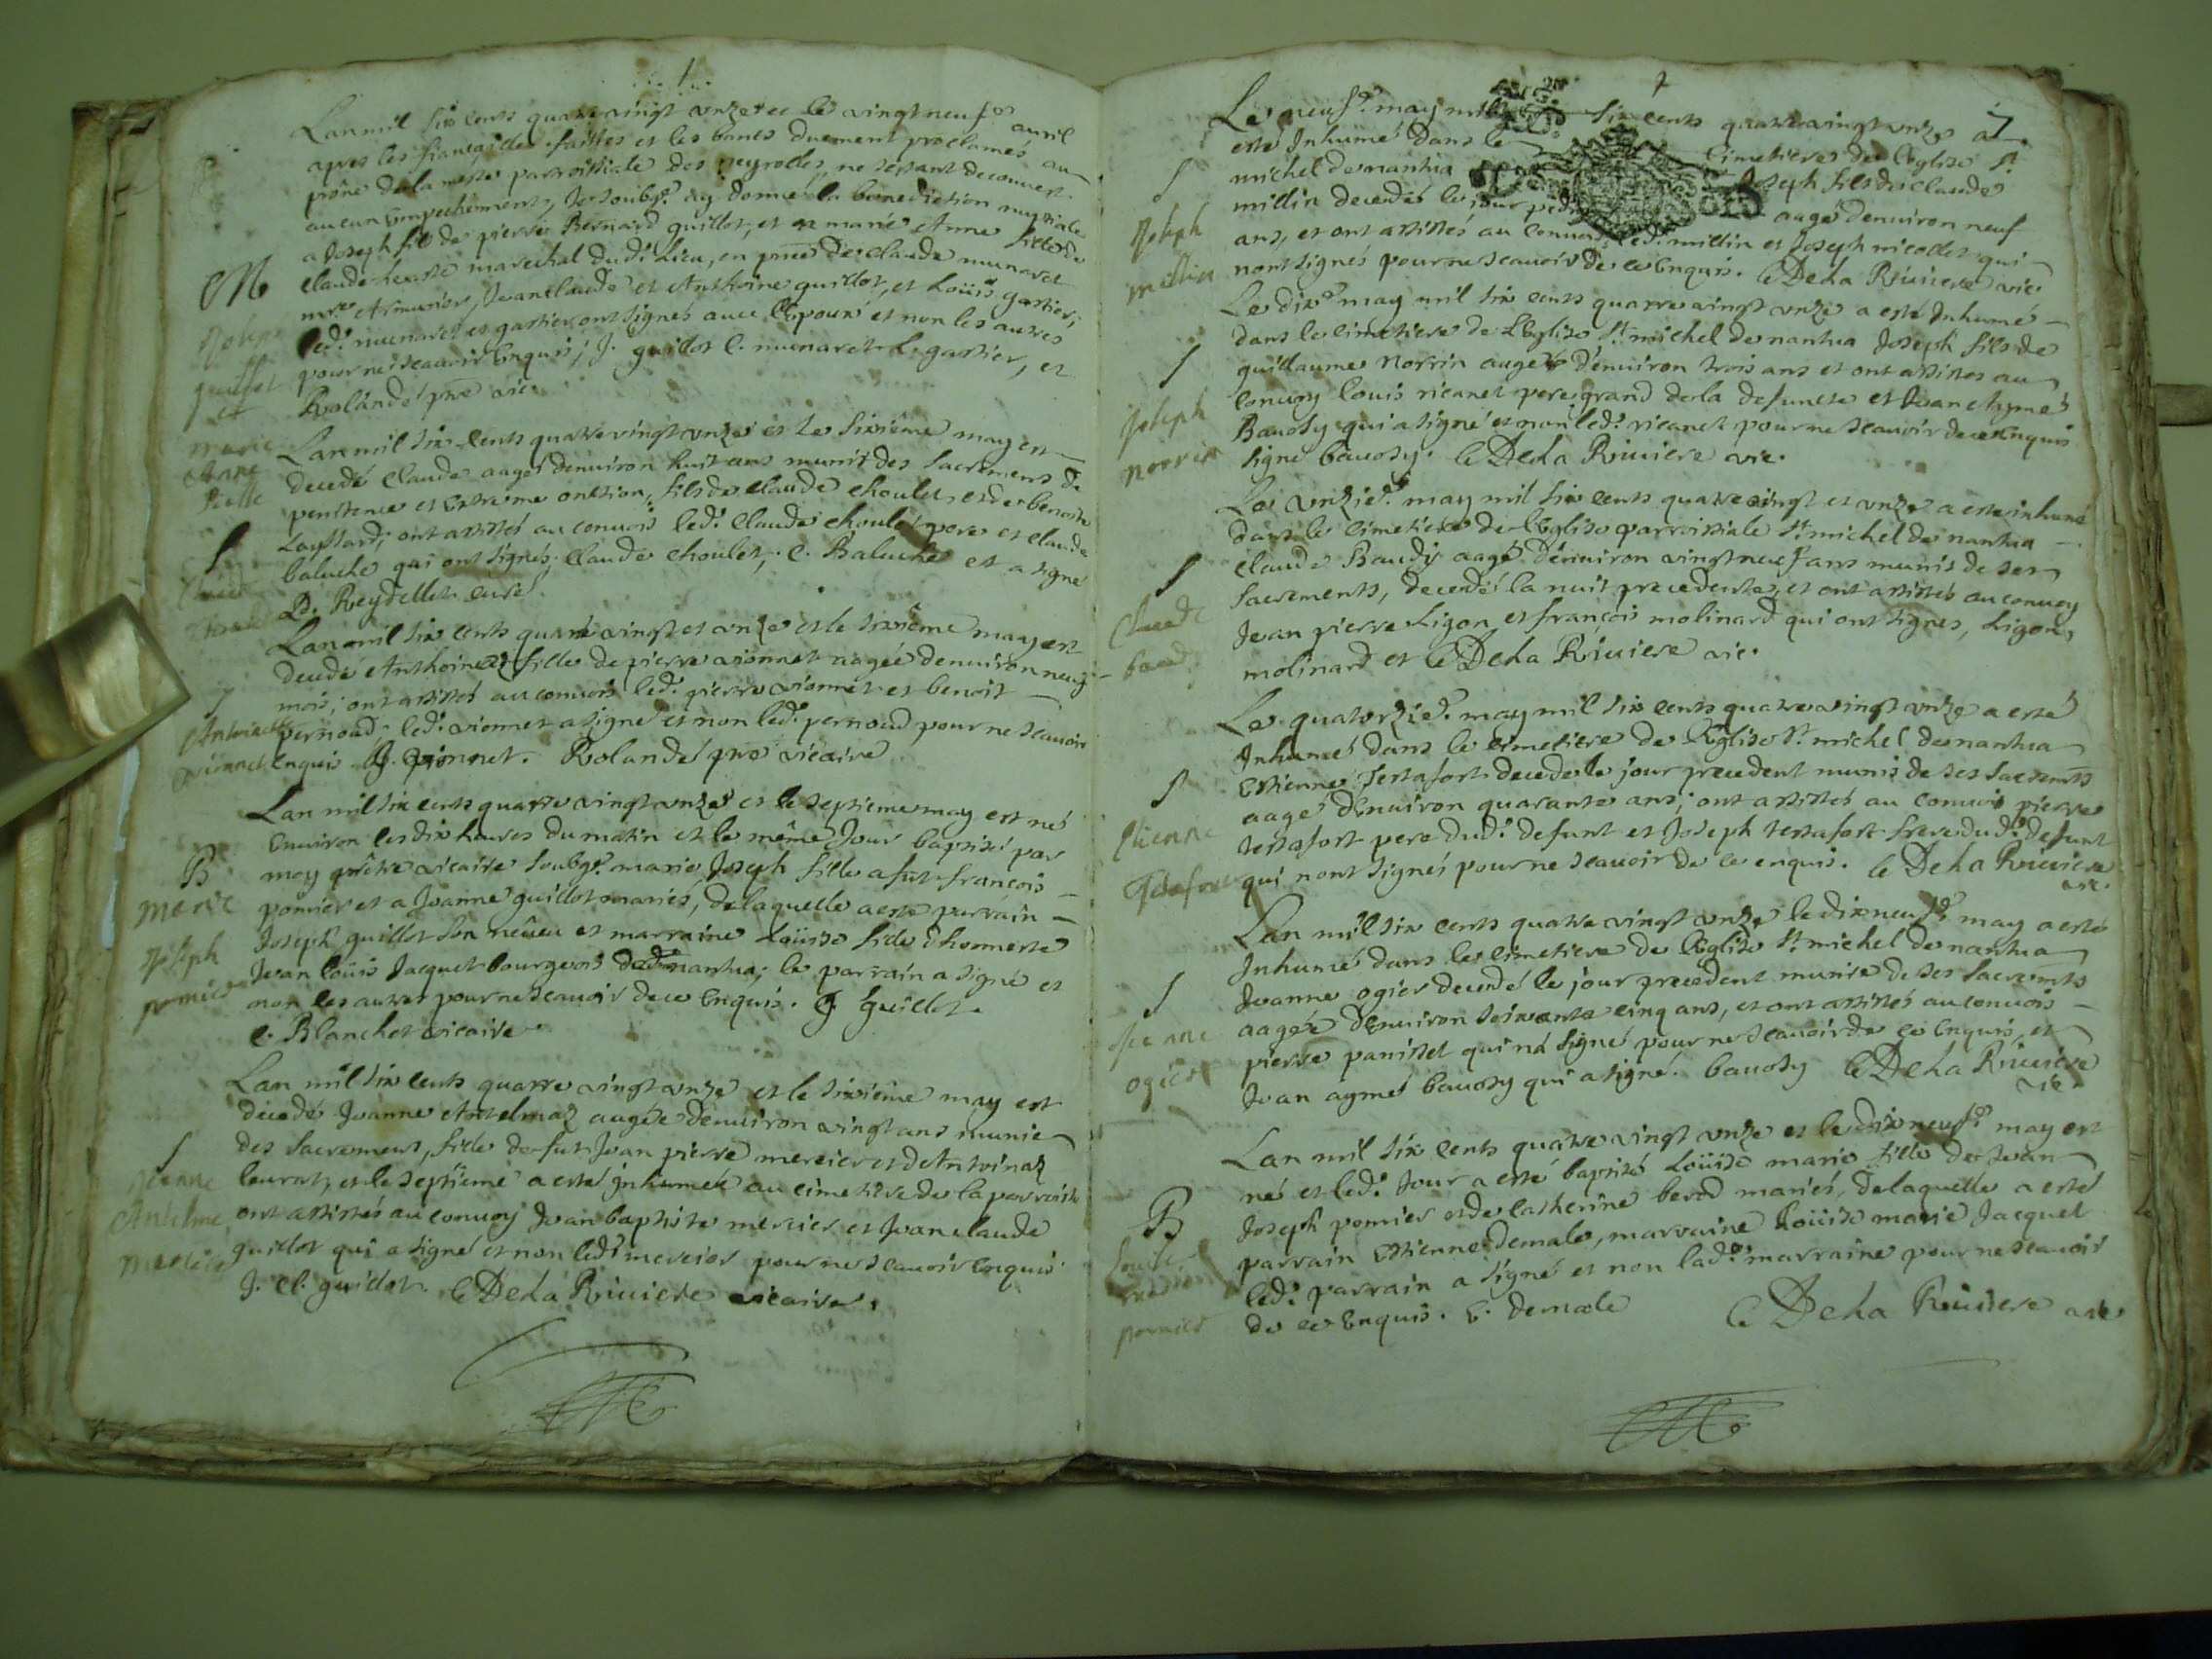 Lan mil six cents quatre vingt unze et le vingt neuf.e auril
apres les fiançailles faittes et les bancs duement proclamés au
prône de la messe parroissiale des neyrolles, ne sestant decouuert
aucun empechement, Je soubg.é ay donné la benediction nuptiale
a Joseph fils de pierre Bernard guillot, et a marie Anne fille de
claude marechal dud.t Lieu, en pnce de claude munaret
M
m.re Armurier, Jean claude et Anthoine guillot, et Loüis gartier;
Joseph
led.t munaret et gartier ont signés auec l'Epoux et non les autres
guillot
pour ne sçauoir Enquis; J. guillot C. munaret L. gartier, et
et
Rolandé pre vic.
marie
Anne
Lan mil six cents quatre vingt unze et le sixiême may est
decedé claude aagé denuiron huit ans munit des sacremens de
penitence et Extreme onction, fils de claude choulet et de benoite
ont assistés au conuois led.t claude choulet pere et claude
S
Claude
baluche qui ont signés; claude choulet, C. Baluche et a signé
D. Reydellet curé.
Lan mil six cents quatre vingt et unze et le sixiême may est
decedé Anthoinaz fille de pierre vionnet aagée denuiron neuf
mois; ont assistés au conuois led.t pierre vionnet et benoit
S
Antoinette
pernoud led.t vionnet a signé et non led.t pernoud pour ne sçauoir
vionnet
Enquis. P. vionnet. Rolandé pre vicaire
Lan mil six cents quatre vingt unze et le septieme may est né
Enuiron les dix heures du matin et le même Jour baptisé par
B
moy prêtre vicaire soubg.é marie Joseph fille a fut françois
marie
pomier et a Jeanne guillot mariés, de laquelle a esté parrain
Joseph
Joseph guillot son neueu et marraine Loüise fille d'honneste
pomier
Jean loüis Jacquet bourgeois dud.t nantua; le parrain a signé et
non les autres pour ne sçauoir de ce Enquis. J. guillot.
C. Blanchet vicaire
Lan mil six cents quatre vingt unze et le sixiême may est
decedée Jeanne Antelmaz aagée denuiron vingt ans munie
S
des sacremens, fille de fut Jean pierre mercier et d'Antoinaz
Jeanne
leurat, et le septiême a esté inhumée au cimetiere de la parroisse
Antelme
ont assistés au conuoy Jean baptiste mercier et Jean claude
mercier
guillot qui a signé et non led.t mercier pour ne sçauoir Enquis
J. Cl. guillot. C De La Riuiere vicaire.
7
Le neuf.e may mille six cents quatre vingt unze a
esté Inhumé dans le Cimetiere de l'Eglise S.t
S
michel de nantua Joseph fils de claude
millin decedés le jour aagé denuiron neuf
Joseph
ans, et ont assistés au conuois led.t millin et Joseph nicollet qui
millin
nont signés pour ne sçauoir de ce Enquis. C De La Riuiere vic
Le dix.e may mil six cents quatre vingt unze a esté Inhumé
dans le cimetiere de L'Eglise S.t michel de nantua Joseph fils de
S
guillaume Norrin aagé denuiron trois ans et ont assistés au
Joseph
conuoy louis ricanet pere grand de la defuncte et Jean Aymé
norrin
Bauosy qui a signé et non led.t ricanet pour ne sçauoir de ce Enquis
signé bauosy. C De La Riuiere vic.
Le unzie.e may mil six cents quatre vingt et unze a esté inhumé
dans le cimetiere de l'Eglise parroissiale S.t michel de nantua
S
claude Baudy aagé denuiron vingt neuf ans munis de ses
sacrements, decedé la nuit precedente, et ont assistés au conuoy
Claude
Jean pierre Ligon et françois molinard qui ont signés, Ligon,
baudy
molinard et C De La Riuiere vic.
Le quatorzie.e may mil six cents quatre vingt unze a esté
Inhumé dans le cimetiere de l'Eglise S.t michel de nantua
S
Estienne Testafort decedé le jour precedent munis de ses sacremts
aagé denuiron quarante ans; ont assistés au conuoi pierre
Etienne
testafort pere dud.t defunt et Joseph testafort frere dud.t defunt
Testafort
qui nont signés pour ne sçauoir de ce enquis. C De La Riuiere
vic.
Lan mil six cents quatre vingt unze le dix neuf.e may a esté
Inhumé dans le cimetiere de l'Eglise S.t michel de nantua
S
Jeanne ogier decedé le jour precedent munie de ses sacremts
Jeanne
aagée denuiron soixante cinq ans, et ont assistés au conuois
ogier
pierre panisset qui n'a signé pour ne sçauoir de ce Enquis, et
Jean aymé bauosy qui a signé. bauosy C De La Riuiere
vic.
Lan mil six cents quatre vingt unze et le dix neuf.e may est
né et led.t Jour a esté baptisé Loüise marie fille de Jean
B
Joseph pomier et de catherine berod mariés, de laquelle a esté
Louise
parrain Estienne demale, marraine Loüise marie Jacquet
marie
led.t parrain a signé et non lad.te marraine pour ne sçauoir
pomier
de ce Enquis. E. Demale C De La Riuiere vic